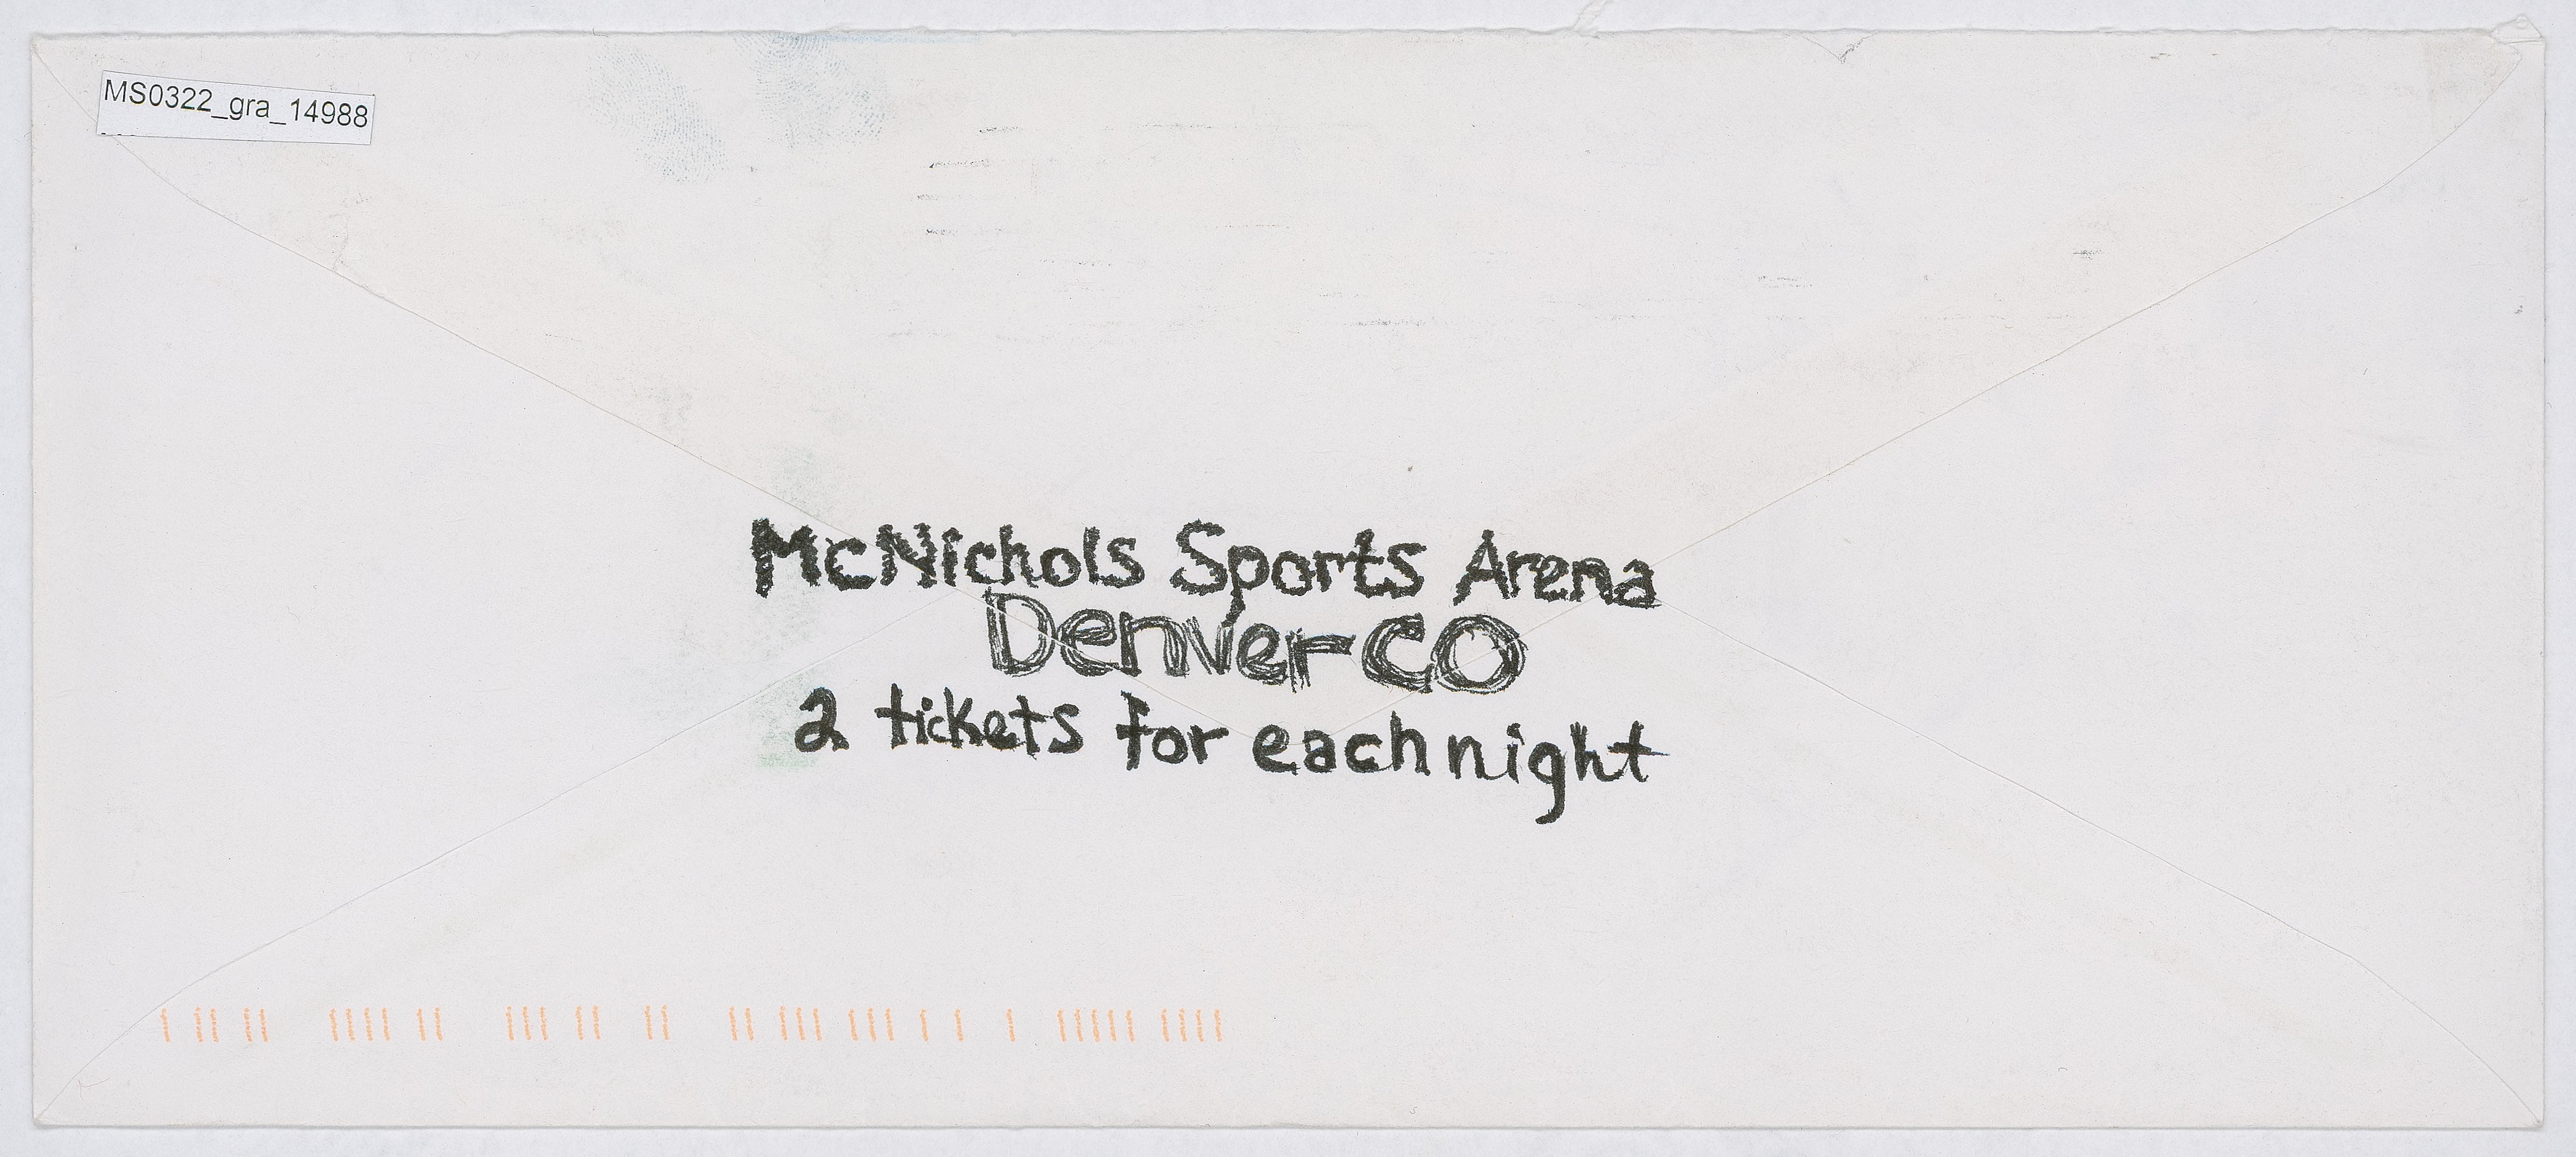 MS0322_gra_14988
McNichols Sports Arena
Denver CO
2 tickets for each night